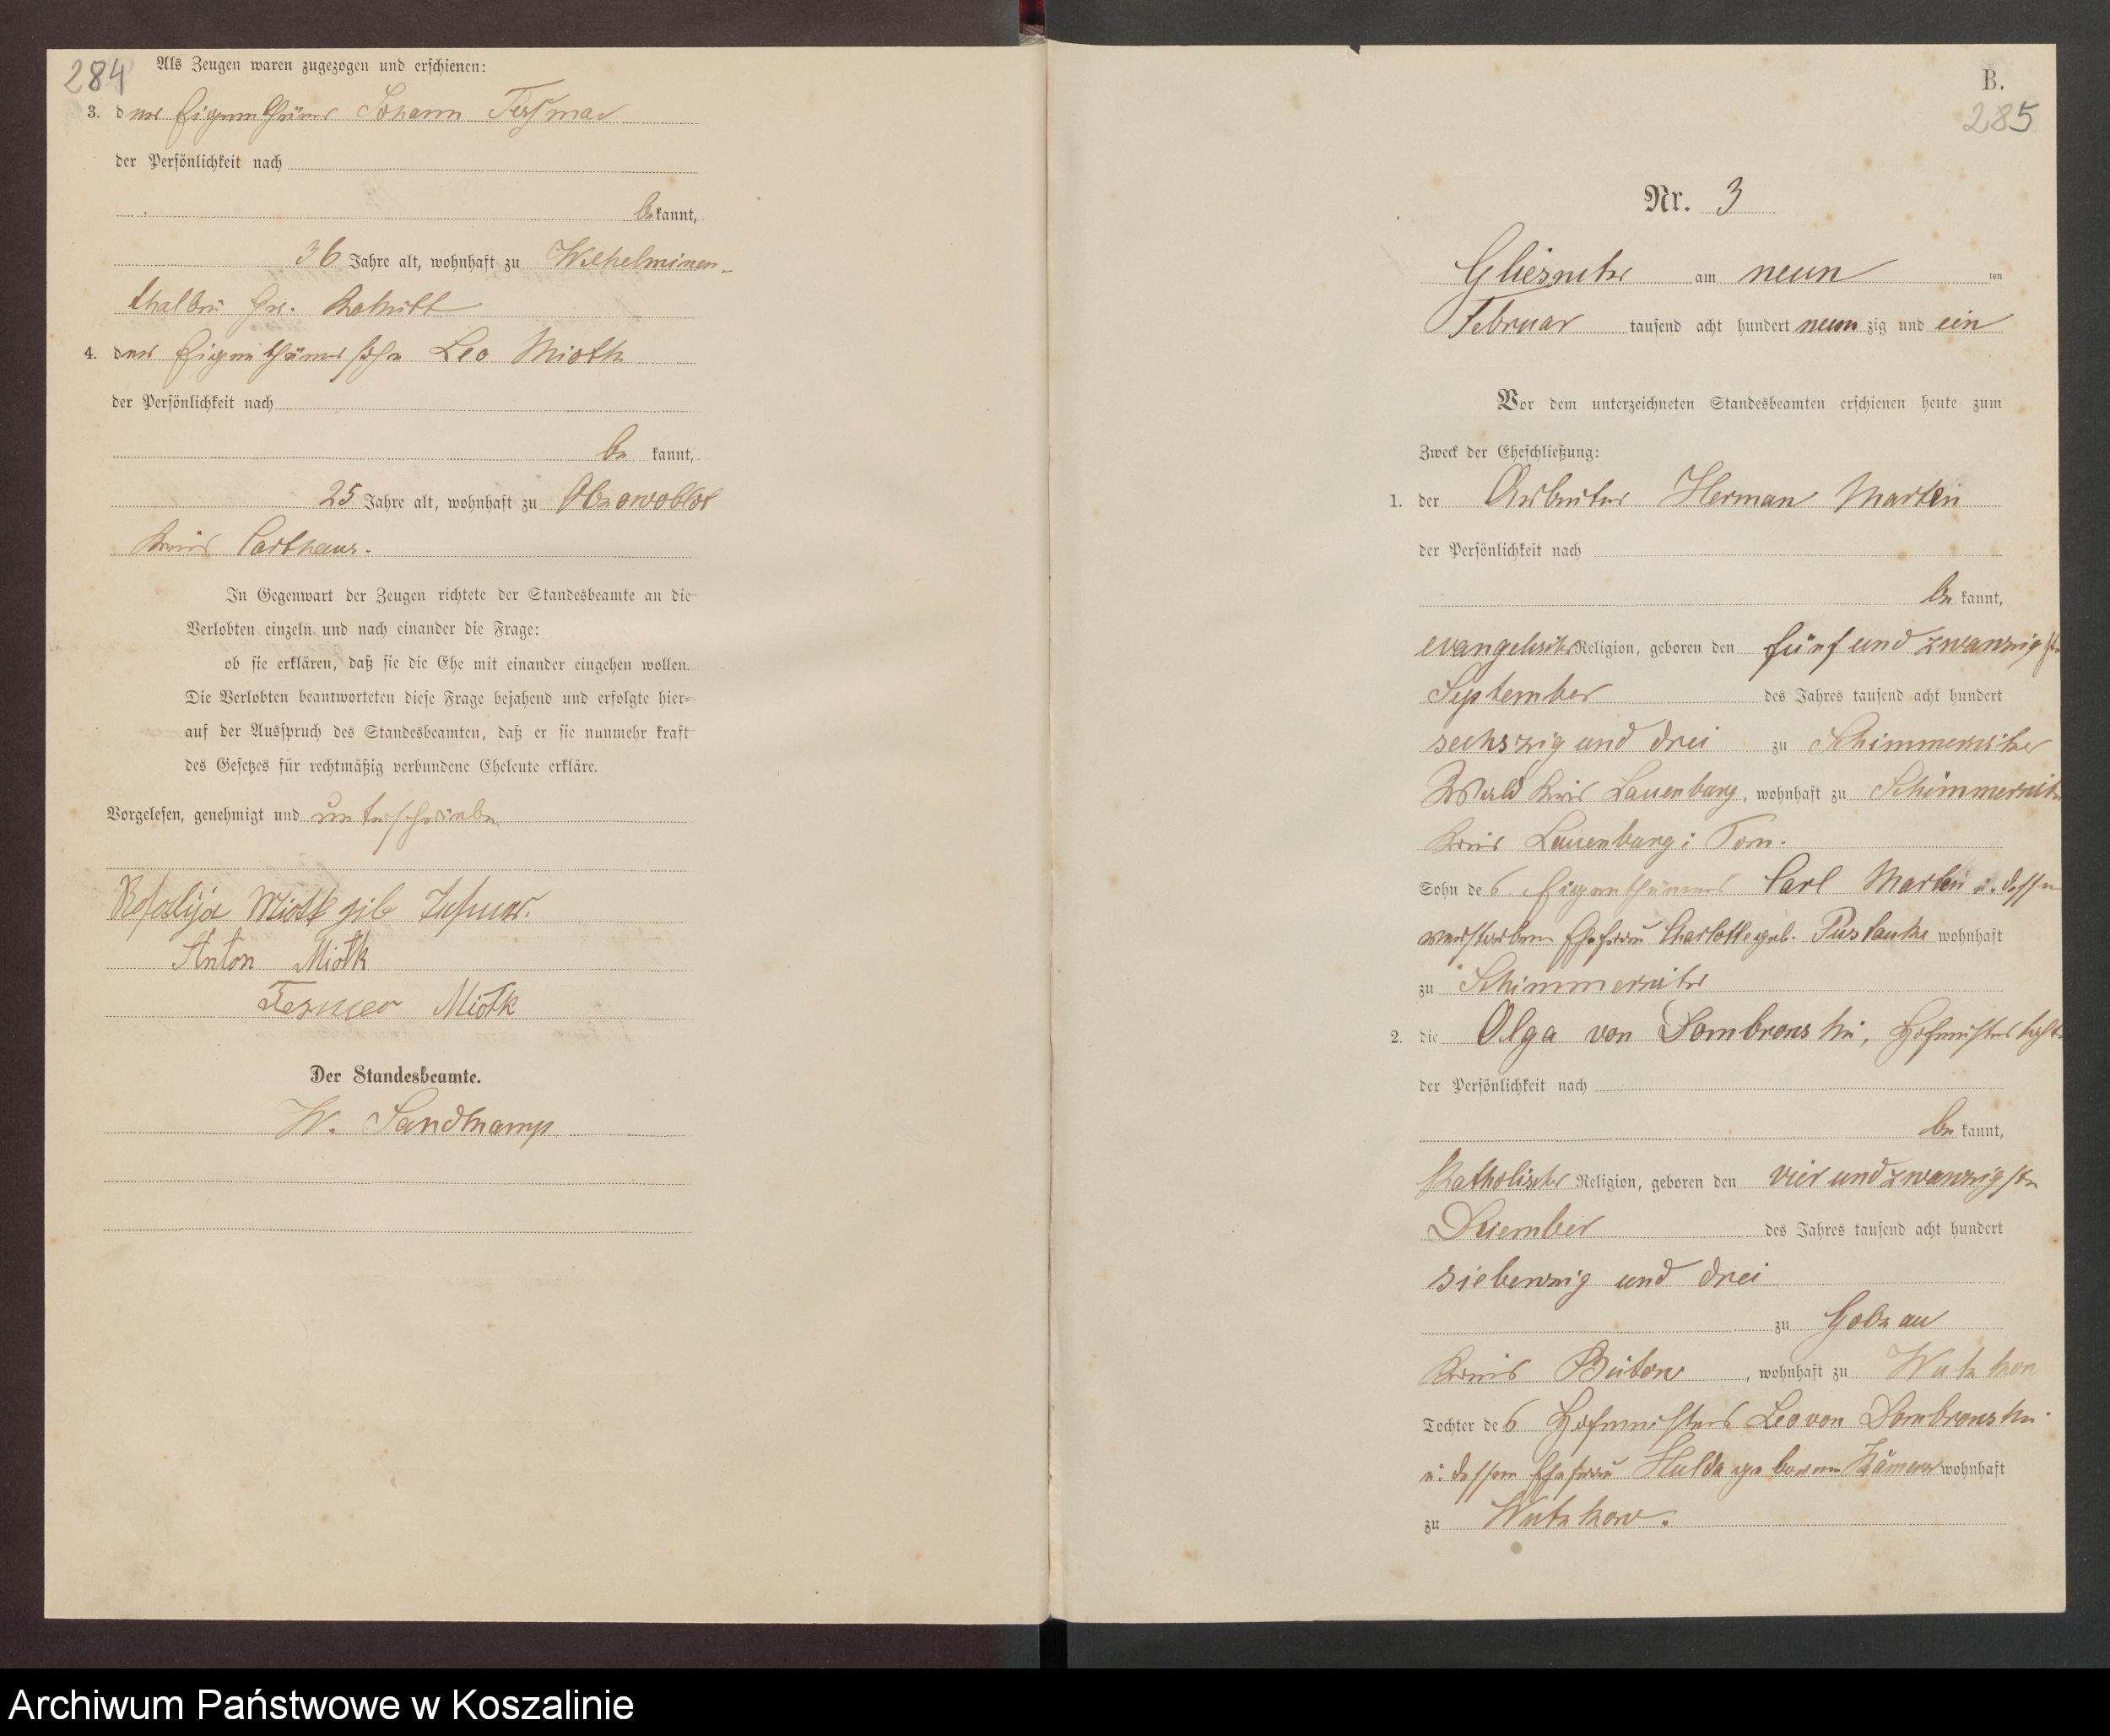 284
Als Zeugen waren zugezogen und erschienen:
3. der Eigenthümer Johann
der Persönlichkeit nach
bekannt,
36 Jahre alt, wohnhaft zu Wilhelminen-
thal bei Gr.
4. der Eigenthümersohn Leo Miotk
der Persönlichkeit nach
be kannt,
25 Jahre alt, wohnhaft zu
Kreis Carthaus.
In Gegenwart der Zeugen richtete der Standesbeamte an die
Verlobten einzeln und nach einander die Frage:
ob sie erklären, daß sie die Ehe mit einander eingehen wollen.
Die Verlobten beantworteten diese Frage bejahend und erfolgte hier-
auf der Ausspruch des Standesbeamten, daß er sie nunmehr kraft
des Gesetzes für rechtmäßig verbundene Eheleute erkläre.
Vorgelesen, genehmigt und unterschrieben
Miotk
Anton Miotk
Miotk
Der Standesbeamte.
W. Sandkamp
B.
285
Nr. 3
am neun ten
Februar tausend acht hundert neunzig und ein
Vor dem unterzeichneten Standesbeamten erschienen heute zum
Zweck der Eheschließung:
1. der Arbeiter Herman
der Persönlichkeit nach
be kannt,
evangelischer Religion, geboren den fünf und zwanzigsten
September des Jahres tausend acht hundert
sechszig und drei zu
Kreis Lauenburg, wohnhaft zu
Kreis Lauenburg i Pom.
Sohn des Eigenthümers Carl u. dessen
verstorbene Ehefrau Charlotte geb. wohnhaft
zu
2. die Olga von Dombrowski, Hofmeistertochter
der Persönlichkeit nach
be kannt,
Katholischer Religion, geboren den vier und zwanzigsten
Dezember des Jahres tausend acht hundert
siebenzig und drei
zu
Kreis Bütow, wohnhaft zu Wutzkow
Tochter des Hofmeisters Leo von Dombrowski
u. dessen Ehefrau Hulda geborene wohnhaft
zu Wutzkow.
Archiwum Państwowe w Koszalinie